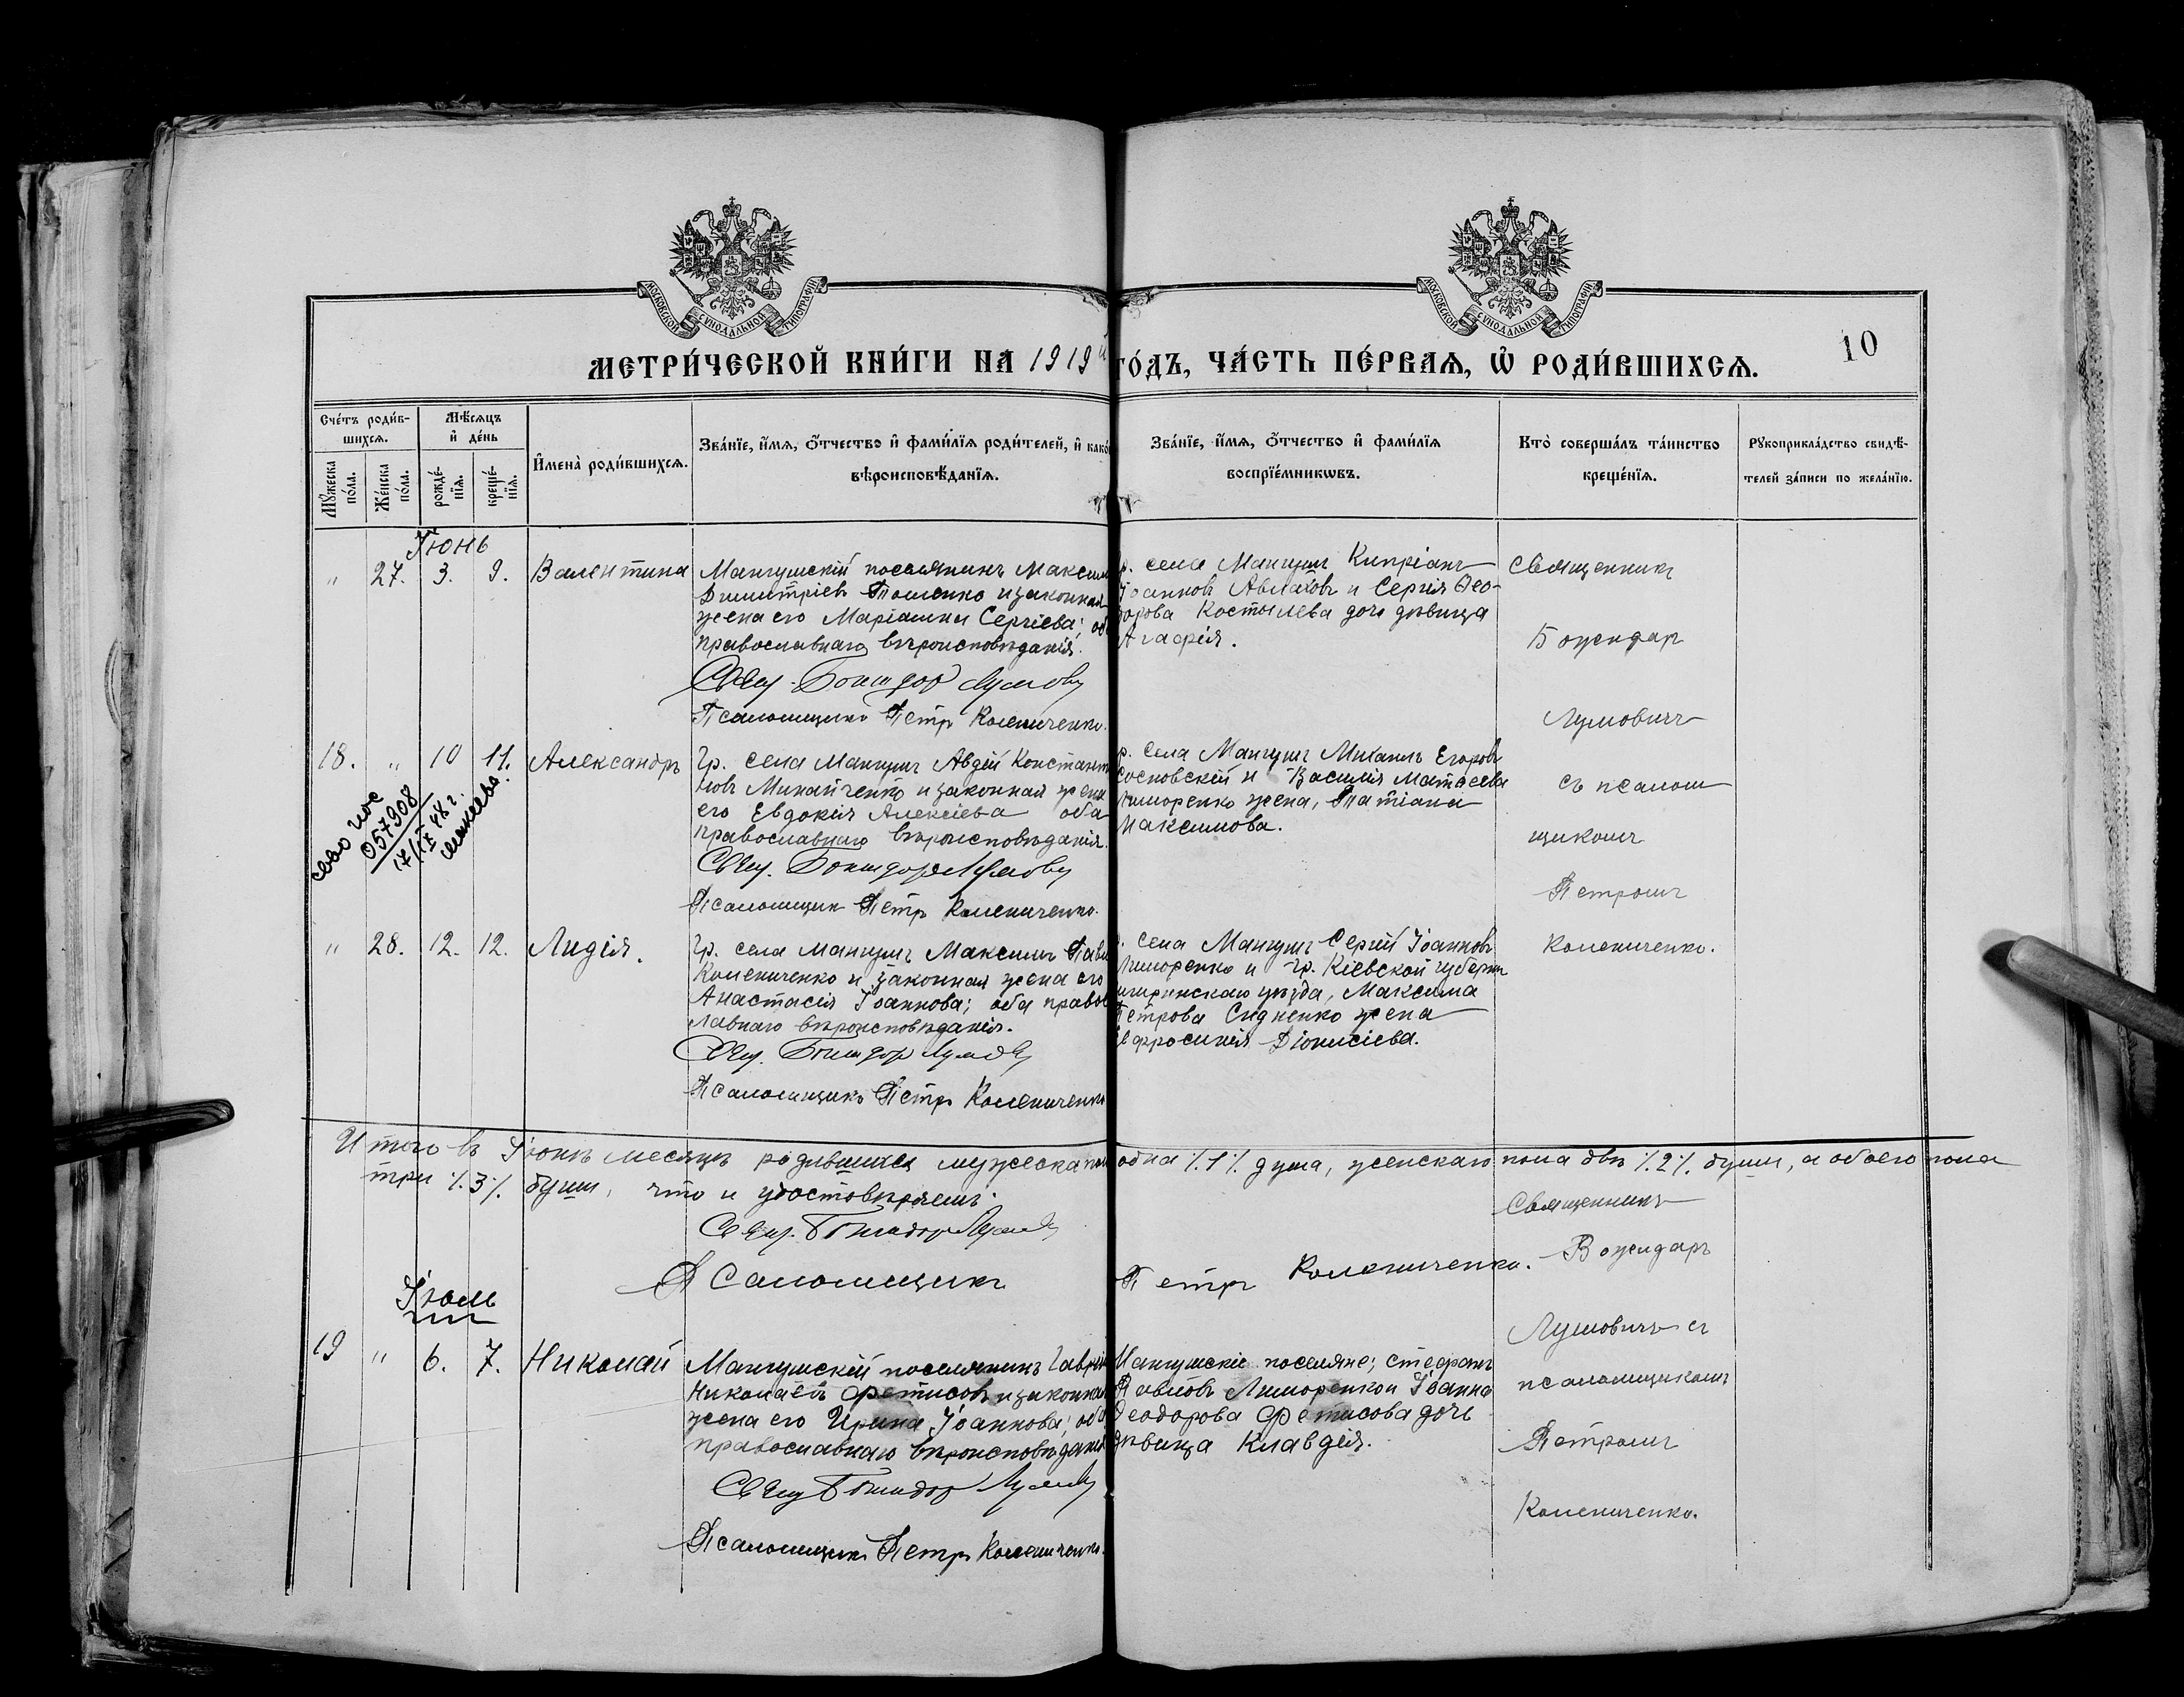 МОСКОВСКОЙ СѴНОДАЛЬНОЙ ТИПОГРАФІИ
МОСКОВСКОЙ СѴНОДАЛЬНОЙ ТИПОГРАФІИ
МЕТРИ́ЧЕСКОЙ КНИ́ГИ НА 1919 й ГО́ДЪ, ЧА́СТЬ ПЕ́РВАѦ, Ѡ҆ РОДИ́ВШИХСѦ.
10
Сче́тъ роди́в-
шихсѧ.
Мѣ́сѧцъ
и҆ де́нь
Мꙋ́жеска
по́ла.
Же́нска
по́ла.
рожде́-
нїѧ.
креще́-
нїѧ.
И҆мена̀ роди́вшихсѧ.
Зва́нїе, и҆́мѧ, ѻ҆́тчество и҆ фами́лїѧ роди́телей, и҆ како́
вѣроисповѣ́данїѧ.
Зва́нїе, и҆́мѧ, ѻ҆́тчество и҆ фами́лїѧ
воспрїе́мникѡвъ.
Кто̀ соверша́лъ та́инство
креще́нїѧ.
Рꙋкоприкла́дство свидѣ́-
телей за́писи по жела́нїю.
Іюнь
" 27. 3. 9. Валентина
Мангушскій поселянинъ Максим
Димитріевъ Тошенко и законная
жена его Маріамна Сергіева; об
православнаго вѣроисповѣданія.
Свящ. Божидар Лумович
Псаломщикъ Петръ Колениченко.
р. села Мангушъ Кипріанъ
Іоанновъ Авлаховъ и Сергія Ѳео-
дорова Костылева дочь дѣвица
Агафія.
Священникъ
Божидар
Лумовичъ
съ псалом
щикомъ
Петромъ
Колениченко.
18. " 10 11. Александръ
Гр. села Мангушъ Авдій Констант
новъ Минайченко и законная жена
его Евдокія Алексіева оба
православнаго вѣроисповѣданія.
Свящ. Божидар Лумович
Псаломщик Петръ Колениченко.
р. села Мангушъ Михаилъ Егоровъ
Сосновскій и Василія Матѳеева
Лиморенко жена, Татіана
Максимова.
057908
17/IX 48 г.
" 28. 12. 12. Лидія.
Гр. села Мангушъ Максимъ Павл
Колениченко и законная жена его
Анастасія Іоаннова; оба правос
лавнаго вѣроисповѣданія.
Свящ. Божидар Лумович
Псаломщикъ Петръ Колениченко
села Мангушъ Сергій Іоанновъ
Лиморенко и гр. Кіевской губерни
игиринскаго уѣзда, Максима
Петрова Сидненко жена
Евфросинія Діонисіева.
Итого въ Іюнѣ месяцѣ родившихся мужеска пол одна ٪1٪ душа, женскаго пола двѣ ٪2٪ души, а обоего пола
три ٪3٪ души, что и удостовѣряемъ.
Свящ. Божидар Лумович
Псаломщикъ Петръ Колениченко.
Священникъ
Божидаръ
Лумовичъ съ
псаломщикомъ
Петромъ
Колениченко.
Іюль
19 " 6. 7. Николай
Мангушскій поселянинъ Гаврі
Николаевъ Фетисовъ и законная
жена его Ирина Іоаннова; оба
православнаго вѣроисповѣдані
Свящ Божидар Лумович
Псаломщикъ Петръ Колениченко.
Мангушскіе поселяне; Стефанъ
Павловъ Лиморенко и Іоанна
Ѳеодорова Фетисова дочь
дѣвица Клавдія.